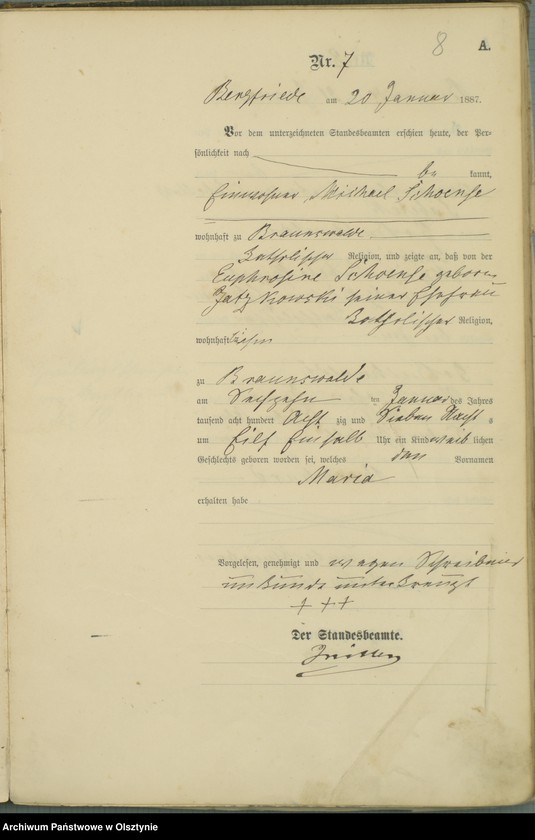 8 A.
Nr. 7
Bergfriede am 20 Januar 1887.
Vor dem unterzeichneten Standesbeamten erschien heute, der Per-
sönlichkeit nach
be kannt,
Einwohner Michael Schoense
wohnhaft zu Braunswalde
Katholischer Religion, und zeigte an, daß von der
Euphrosine Schoense geborn
Jatzkowski seiner Ehefrau
Katholischer Religion,
wohnhaft
zu Braunswalde
am Sechzehn ten Januar des Jahres
tausend acht hundert Acht zig und Sieben Nacht s
um Eilf Einhalb Uhr ein Kind weib lichen
Geschlechts geboren worden sei, welches den Vornamen
Maria
erhalten habe
Vorgelesen, genehmigt und wegen Schreibens
unkunde unterkreuzt
+ + +
Der Standesbeamte.
Archiwum Państwowe w Olsztynie